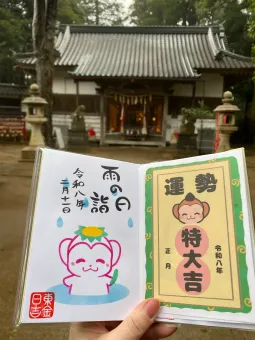 雨の日詣
令和八年
二月十一日
東金
日吉
運勢
特大吉
令和八年
正月